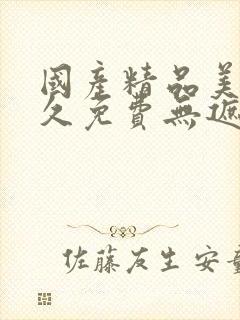 國產精品美
久免費無遮
佐藤友生安